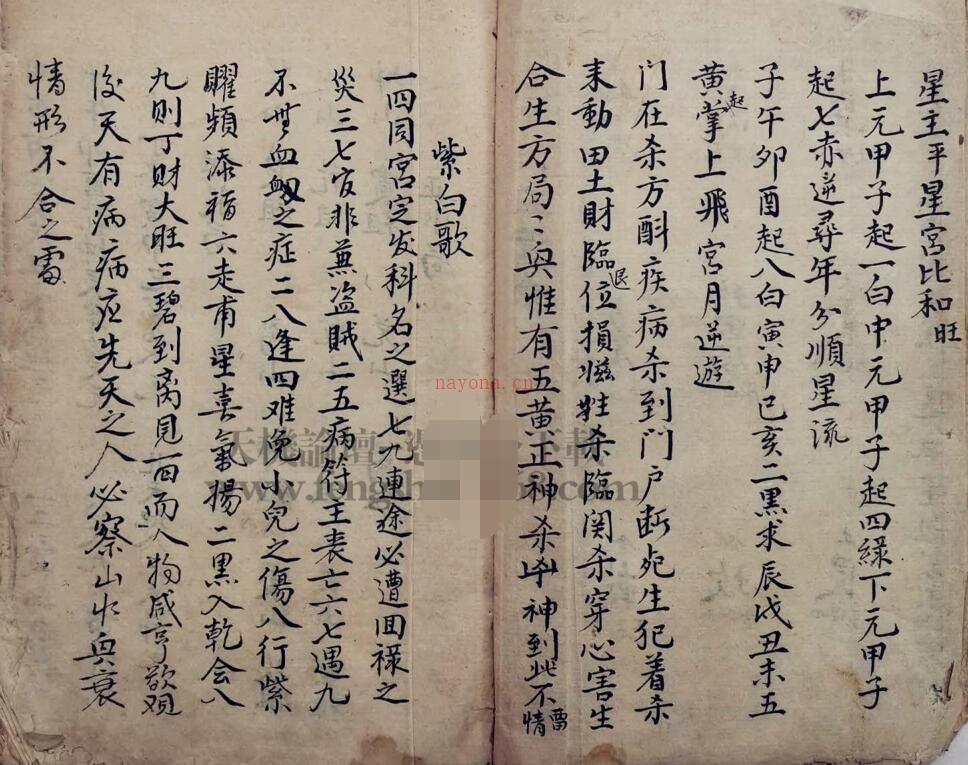 星主平星宮比和旺
上元甲子起一白中元甲子起四綠下元甲子
起七赤逆尋年分順星流
子午卯酉起八白寅申巳亥二黑求辰戌丑未五
黃起掌上飛宮月逆遊
门在杀方酙疾病杀到门户断死生犯着杀
耒動田土財臨退位損
牲杀臨関杀穿心害生
合生方局〻與惟有五黃正神杀凶神到此不
留情
紫白歌
一四同宮定发科名之選七九連途必遭回祿之
災三七官非蕪盗賊二五病符主丧亡六七遇九
不無血
之症二八逢四难免小兒之傷八行紫
瞿頻添福六走甫星喜氣揚二黑入乾会八
九則丁財大旺三碧到离見一四而人物咸亨欲观
後天有病病应先天之人必察山水與衰
情形不合之
天機論壇
nayona.cn